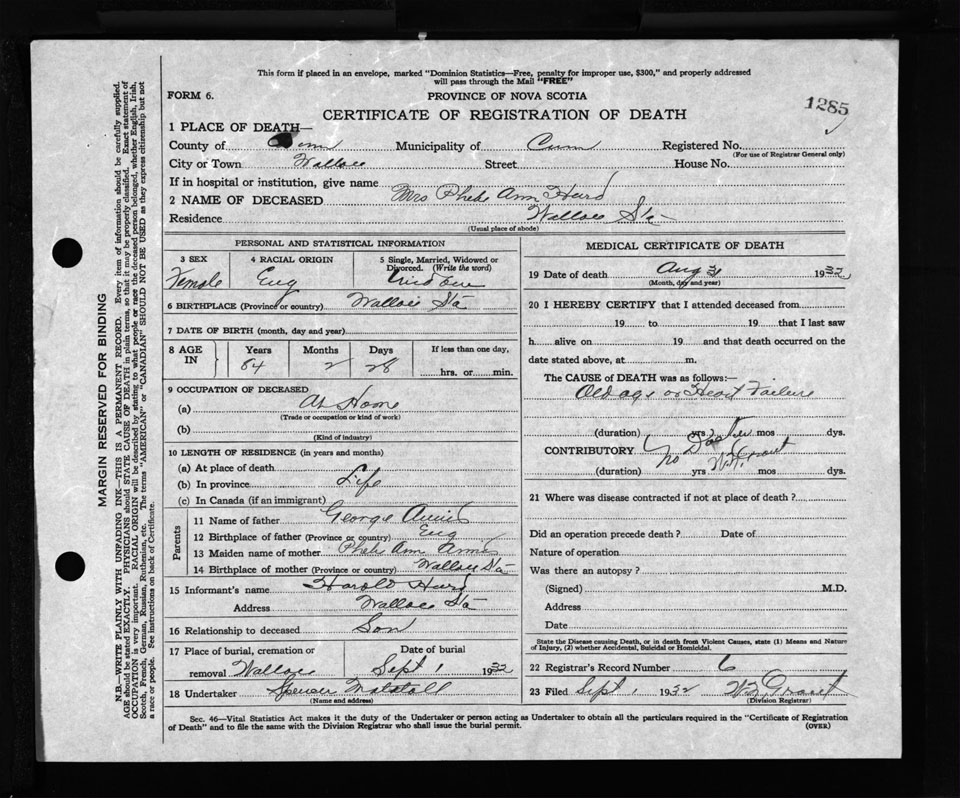 This form if placed in an envelope, marked "Dominion Statistics—Free, penalty for improper use, $300," and properly addressed
will pass through the Mail "FREE"
FORM 6.
PROVINCE OF NOVA SCOTIA
1285
CERTIFICATE OF REGISTRATION OF DEATH
1 PLACE OF DEATH—
County of Municipality of Cum Registered No.
(For use of Registrar General only)
City or Town Wallace Street House No.
If in hospital or institution, give name
2 NAME OF DECEASED Mrs Phebe Ann Hurd
Residence Wallace Sta
(Usual place of abode)
PERSONAL AND STATISTICAL INFORMATION
3 SEX 4 RACIAL ORIGIN 5 Single, Married, Widowed or Divorced. (Write the word)
Female Eng
6 BIRTHPLACE (Province or country) Wallace Sta
7 DATE OF BIRTH (month, day and year)
8 AGE IN Years Months Days If less than one day,
84 2 28 hrs. or min.
9 OCCUPATION OF DECEASED
(a) At Home
(Trade or occupation or kind of work)
(b)
(Kind of industry)
10 LENGTH OF RESIDENCE (in years and months)
(a) At place of death
(b) In province Life
(c) In Canada (if an immigrant)
Parents
11 Name of father George
12 Birthplace of father (Province or country) Eng
13 Maiden name of mother Phebe Ann
14 Birthplace of mother (Province or country) Wallace Sta
15 Informant's name Harold Hurd
Address Wallace Sta
16 Relationship to deceased Son
17 Place of burial, cremation or removal Wallace
Date of burial
Sept 1 1932
18 Undertaker Spencer
(Name and address)
MEDICAL CERTIFICATE OF DEATH
19 Date of death Aug 31 1932
(Month, day and year)
20 I HEREBY CERTIFY that I attended deceased from
19 to 19 that I last saw
h alive on 19 and that death occurred on the
date stated above, at m.
The CAUSE of DEATH was as follows:—
Old age or Heart Failure
(duration) yrs mos dys.
CONTRIBUTORY No Doctor
(duration) yrs mos dys.
Grant
21 Where was disease contracted if not at place of death?
Did an operation precede death? Date of
Nature of operation
Was there an autopsy?
(Signed) M.D.
Address
Date
State the Disease causing Death, or in death from Violent Causes, state (1) Means and Nature
of Injury, (2) whether Accidental, Suicidal or Homicidal.
22 Registrar's Record Number 6
23 Filed Sept 1 1932 Grant
(Division Registrar)
Sec. 46—Vital Statistics Act makes it the duty of the Undertaker or person acting as Undertaker to obtain all the particulars required in the "Certificate of Registration
of Death" and to file the same with the Division Registrar who shall issue the burial permit.
(OVER)
MARGIN RESERVED FOR BINDING
N.B.—WRITE PLAINLY WITH UNFADING INK—THIS IS A PERMANENT RECORD. Every item of information should be carefully supplied.
AGE should be stated EXACTLY. PHYSICIANS should STATE CAUSE OF DEATH in plain terms, so that it may be properly classified. Exact statement of
OCCUPATION is very important. RACIAL ORIGIN will be described by stating to what people or race the deceased person belonged, whether English, Irish,
Scotch, French, German, Russian, Ruthenian, etc. The terms "AMERICAN" or "CANADIAN" SHOULD NOT BE USED as they express citizenship but not
a race or people. See instructions on back of Certificate.